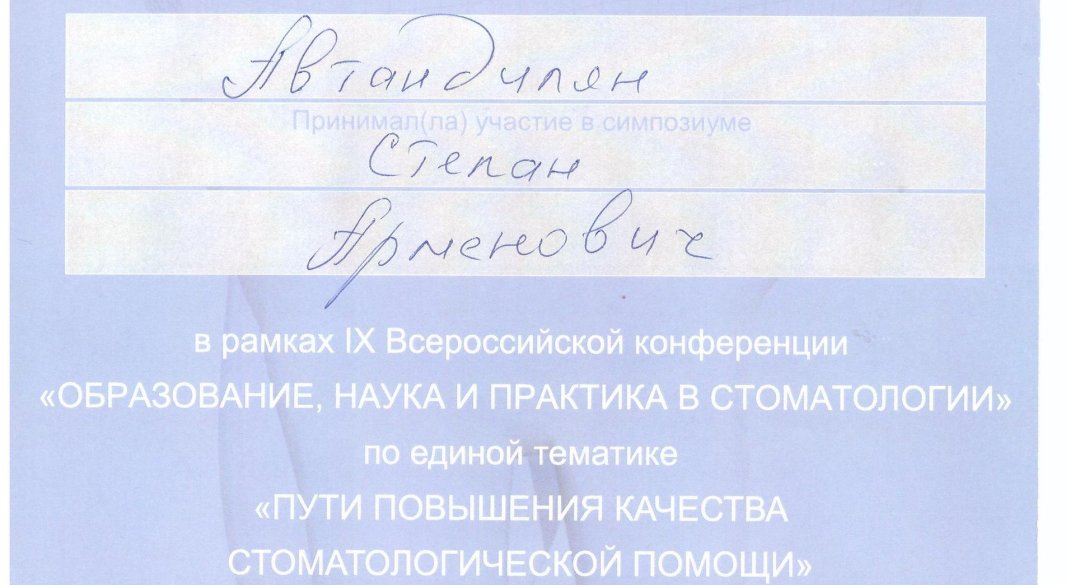 Автандилян
Принимал(ла) участие в симпозиуме
Степан
Арменович
в рамках IX Всероссийской конференции
«ОБРАЗОВАНИЕ, НАУКА И ПРАКТИКА В СТОМАТОЛОГИИ»
по единой тематике
«ПУТИ ПОВЫШЕНИЯ КАЧЕСТВА
СТОМАТОЛОГИЧЕСКОЙ ПОМОЩИ»